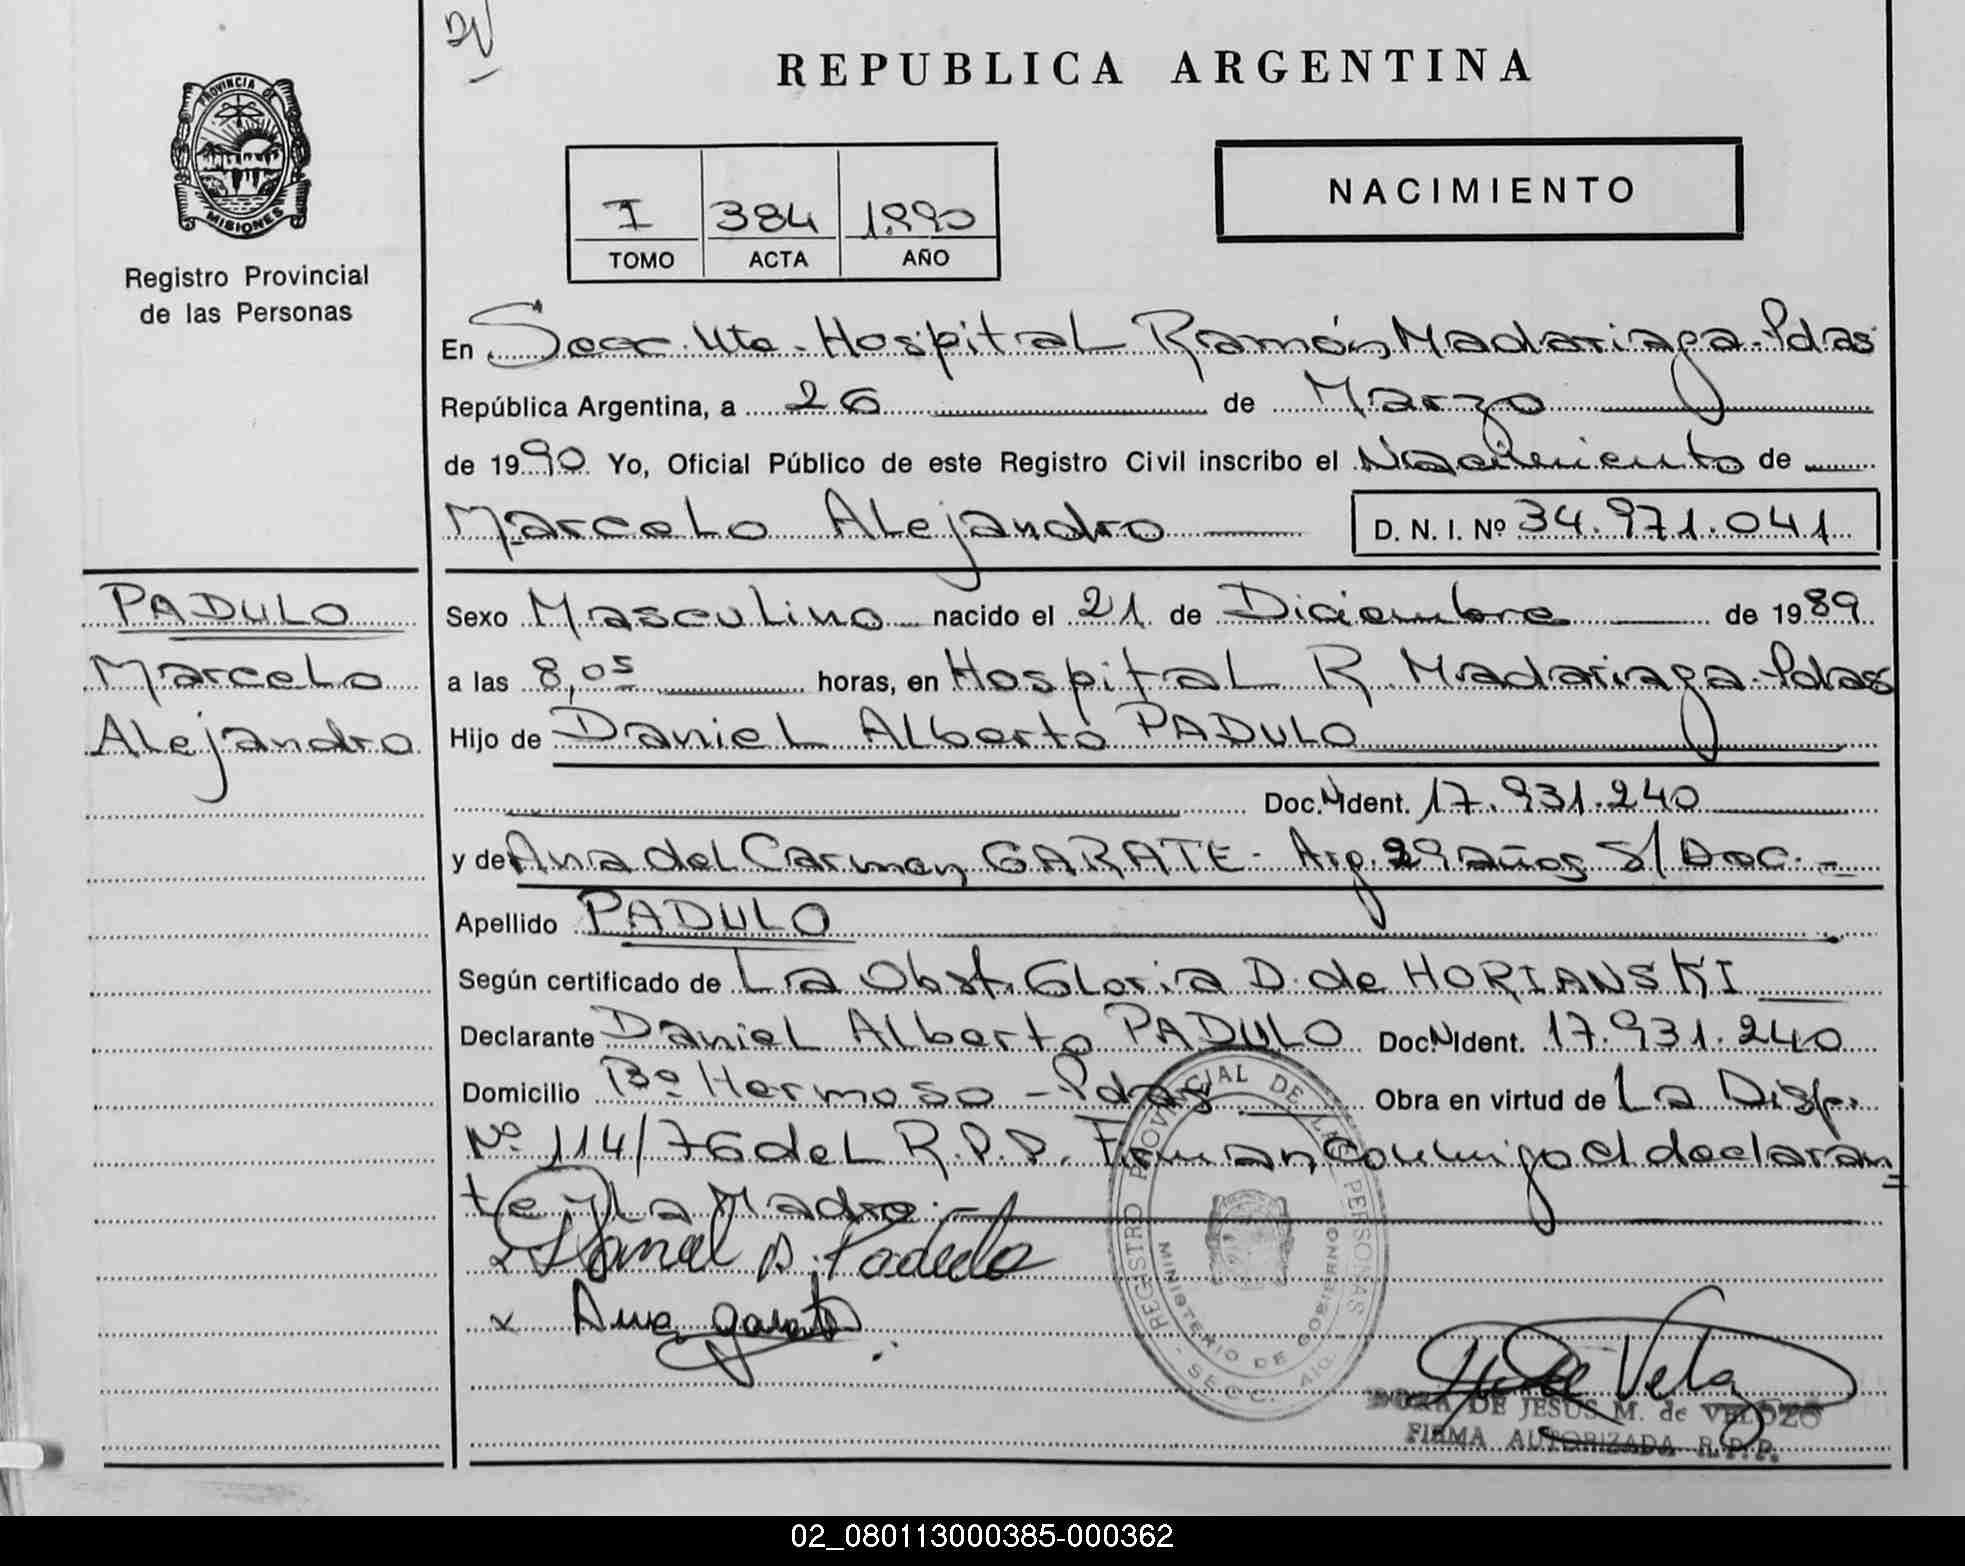 DV
REPUBLICA ARGENTINA
PROVINCIA DE
MISIONES
Registro Provincial
de las Personas
I 384 1990
TOMO ACTA AÑO
NACIMIENTO
En Secc. Mte. Hospital Ramón Madariaga - Pdas
República Argentina, a 26 de Marzo
de 1990 Yo, Oficial Público de este Registro Civil inscribo el Nacimiento de
Marcelo Alejandro D. N. I. Nº 34.971.041
PADULO
Marcelo
Alejandro
Sexo Masculino nacido el 21 de Diciembre de 1989
a las 8,05 horas, en Hospital R. Madariaga - Pdas
Hijo de Daniel Alberto PADULO
Doc. N Ident. 17.931.240
y de Ana del Carmen GARATE - Arg. 29 años S/ Doc. -
Apellido PADULO
Según certificado de La Obst. Gloria D. de HORIANSKI
Declarante Daniel Alberto PADULO Doc. N Ident. 17.931.240
Domicilio Bº Hermoso - Pdas Obra en virtud de La Disp.
Nº 114/76 del R.P.P. Firman conmigo el declaran
te y La Madre. -
x Daniel A. Padulo
x Ana Garate
REGISTRO PROVINCIAL DE LAS PERSONAS
MINISTERIO DE GOBIERNO
- SECC.
DE JESUS M. de VELOZO
FIRMA AUTORIZADA R.P.P.
02_080113000385-000362